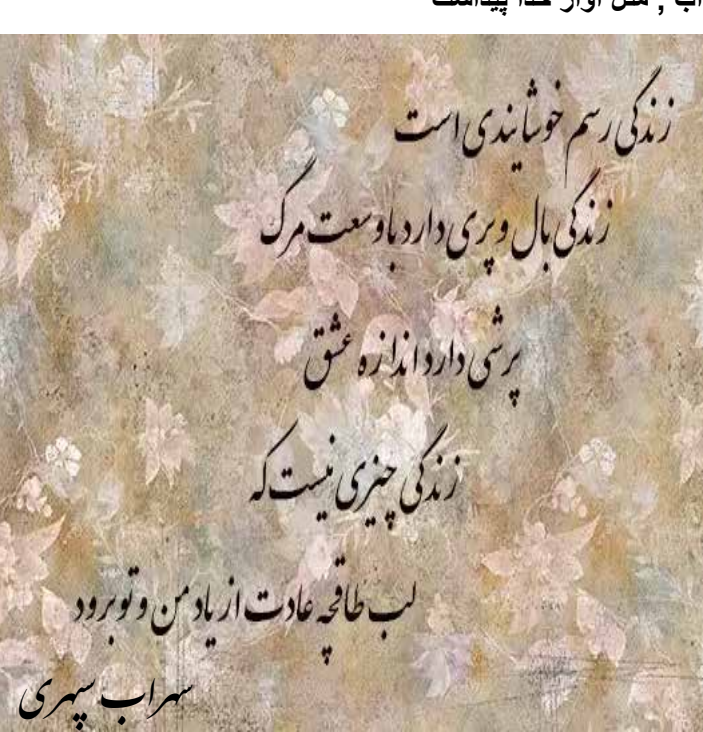 زندگی رسم خوشایندی است
زندگی بال و پری دارد با وسعت مرگ
پرشی دارد اندازه عشق
زندگی چیزی نیست که
لب طاقچه عادت از یاد من و تو برود
سهراب سپهری